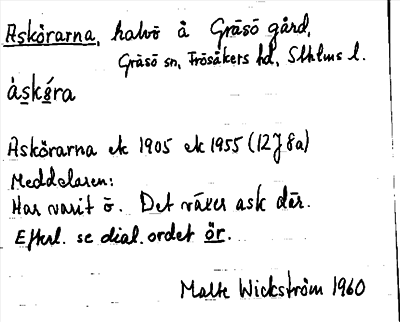 Askörarna, halvö å Gräsö gård,
Gräsö sn, Frösåkers hd, Sthlms l.
àskö́ra
Askörarna ek 1905 ek 1955 (12J 8a)
Meddelaren:
Har varit ö. Det växer ask där.
Efterl. se dial. ordet ör.
Malte Wickström 1960